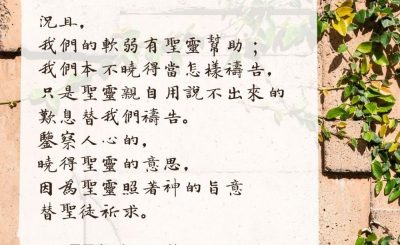 況且，
我們的軟弱有聖靈幫助；
我們本不曉得當怎樣禱告，
只是聖靈親自用說不出來的
歎息替我們禱告。
鑒察人心的，
曉得聖靈的意思，
因為聖靈照著神的旨意
替聖徒祈求。